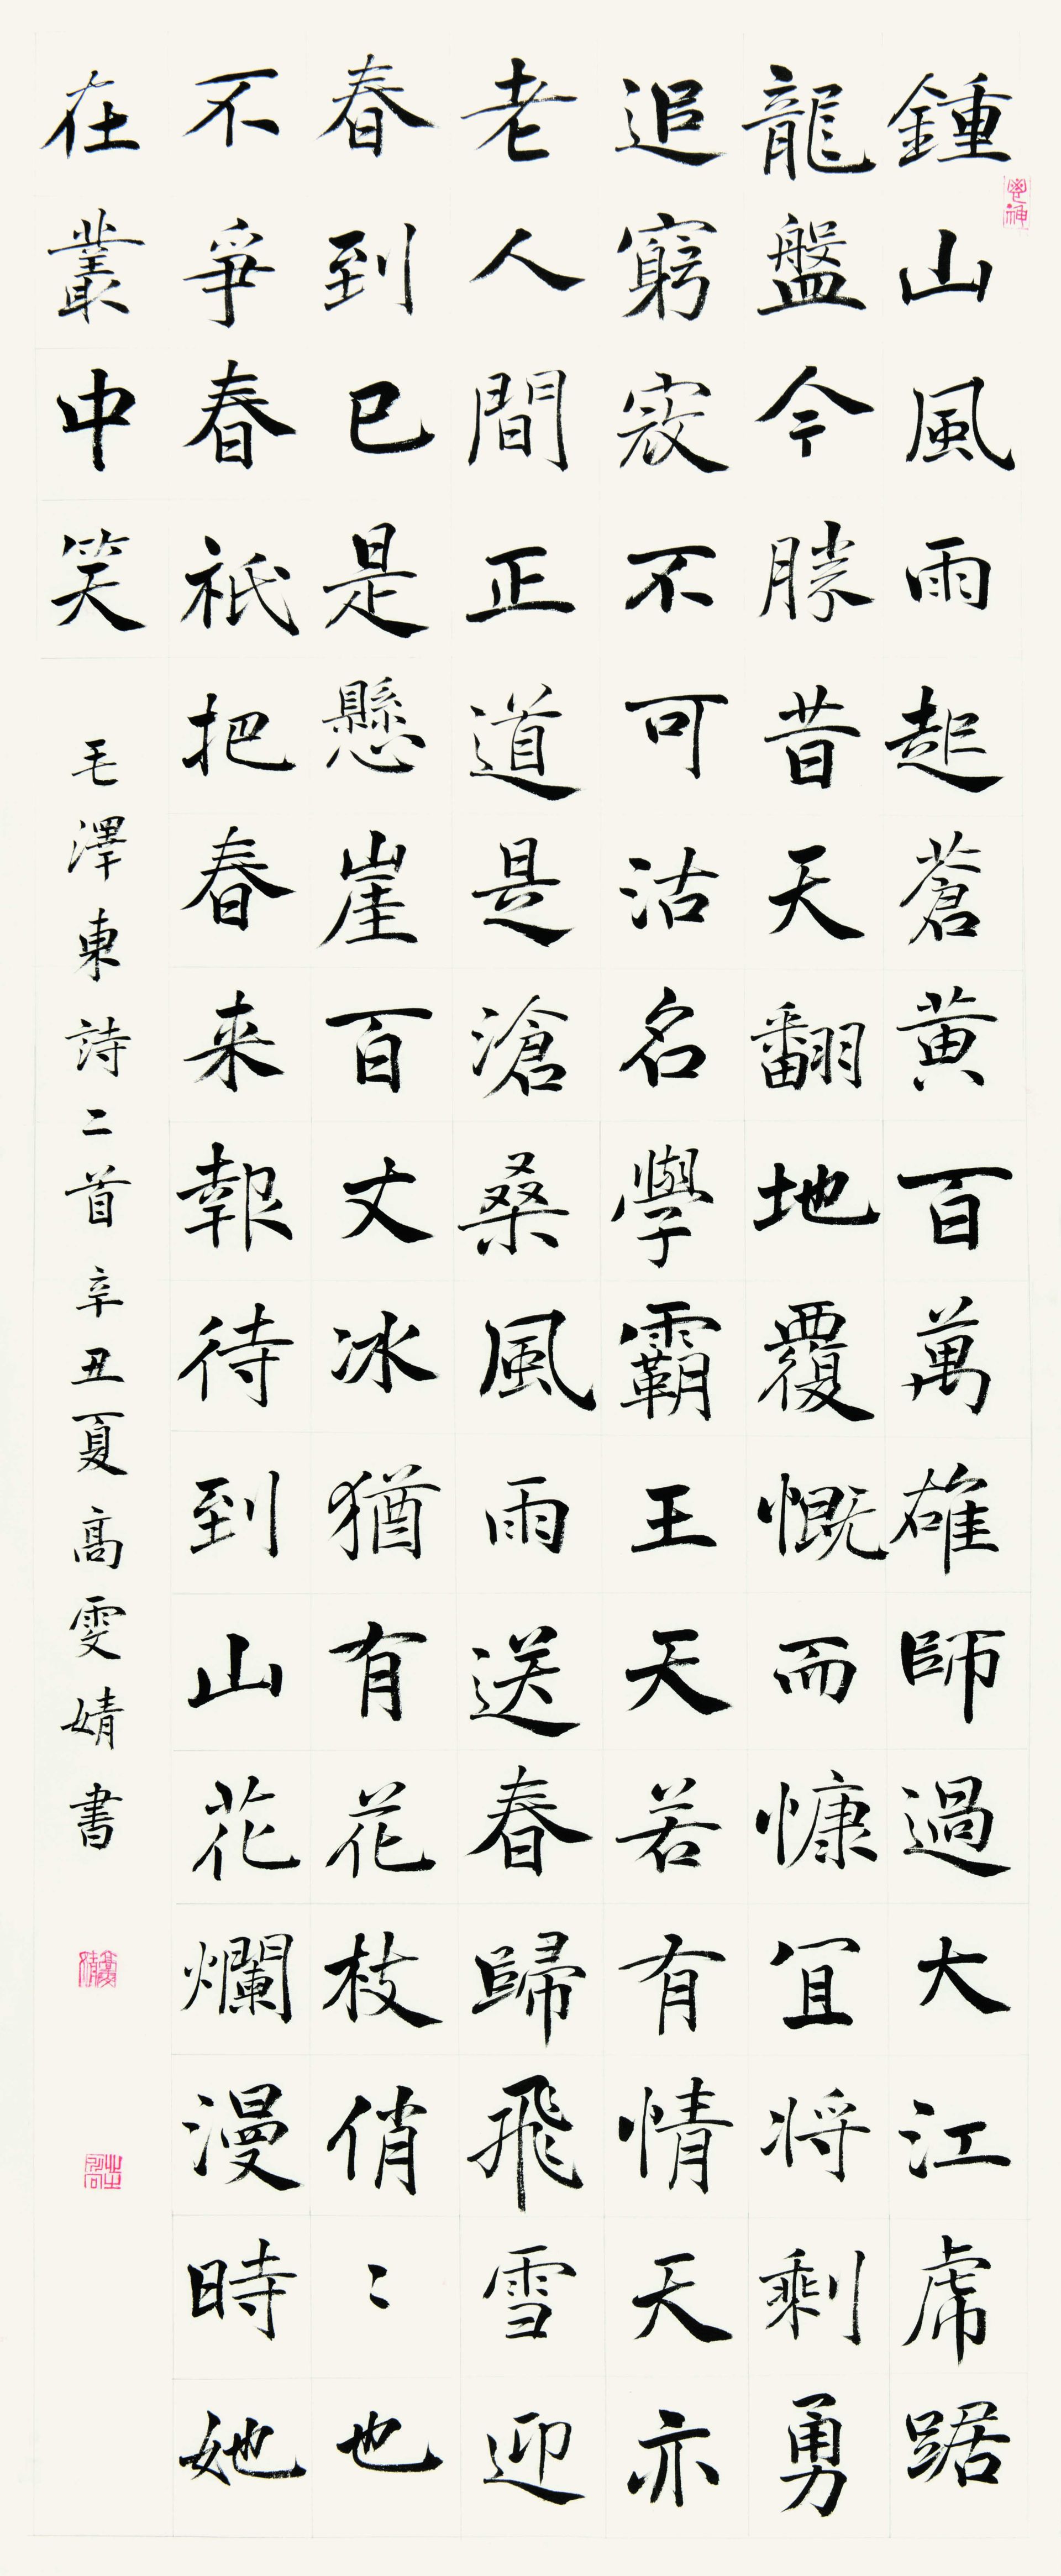 鍾山風雨起蒼黄百萬雄師過大江虎踞
龍盤今勝昔天翻地覆慨而慷冝将剩勇
追窮寇不可沽名學霸王天若有情天亦
老人間正道是滄桑風雨送春歸飛雪迎
春到已是懸崖百丈冰猶有花枝俏〻也
不爭春祇把春来報待到山花爛漫時她
在叢中笑
毛澤東詩二首辛丑夏高雯婧書